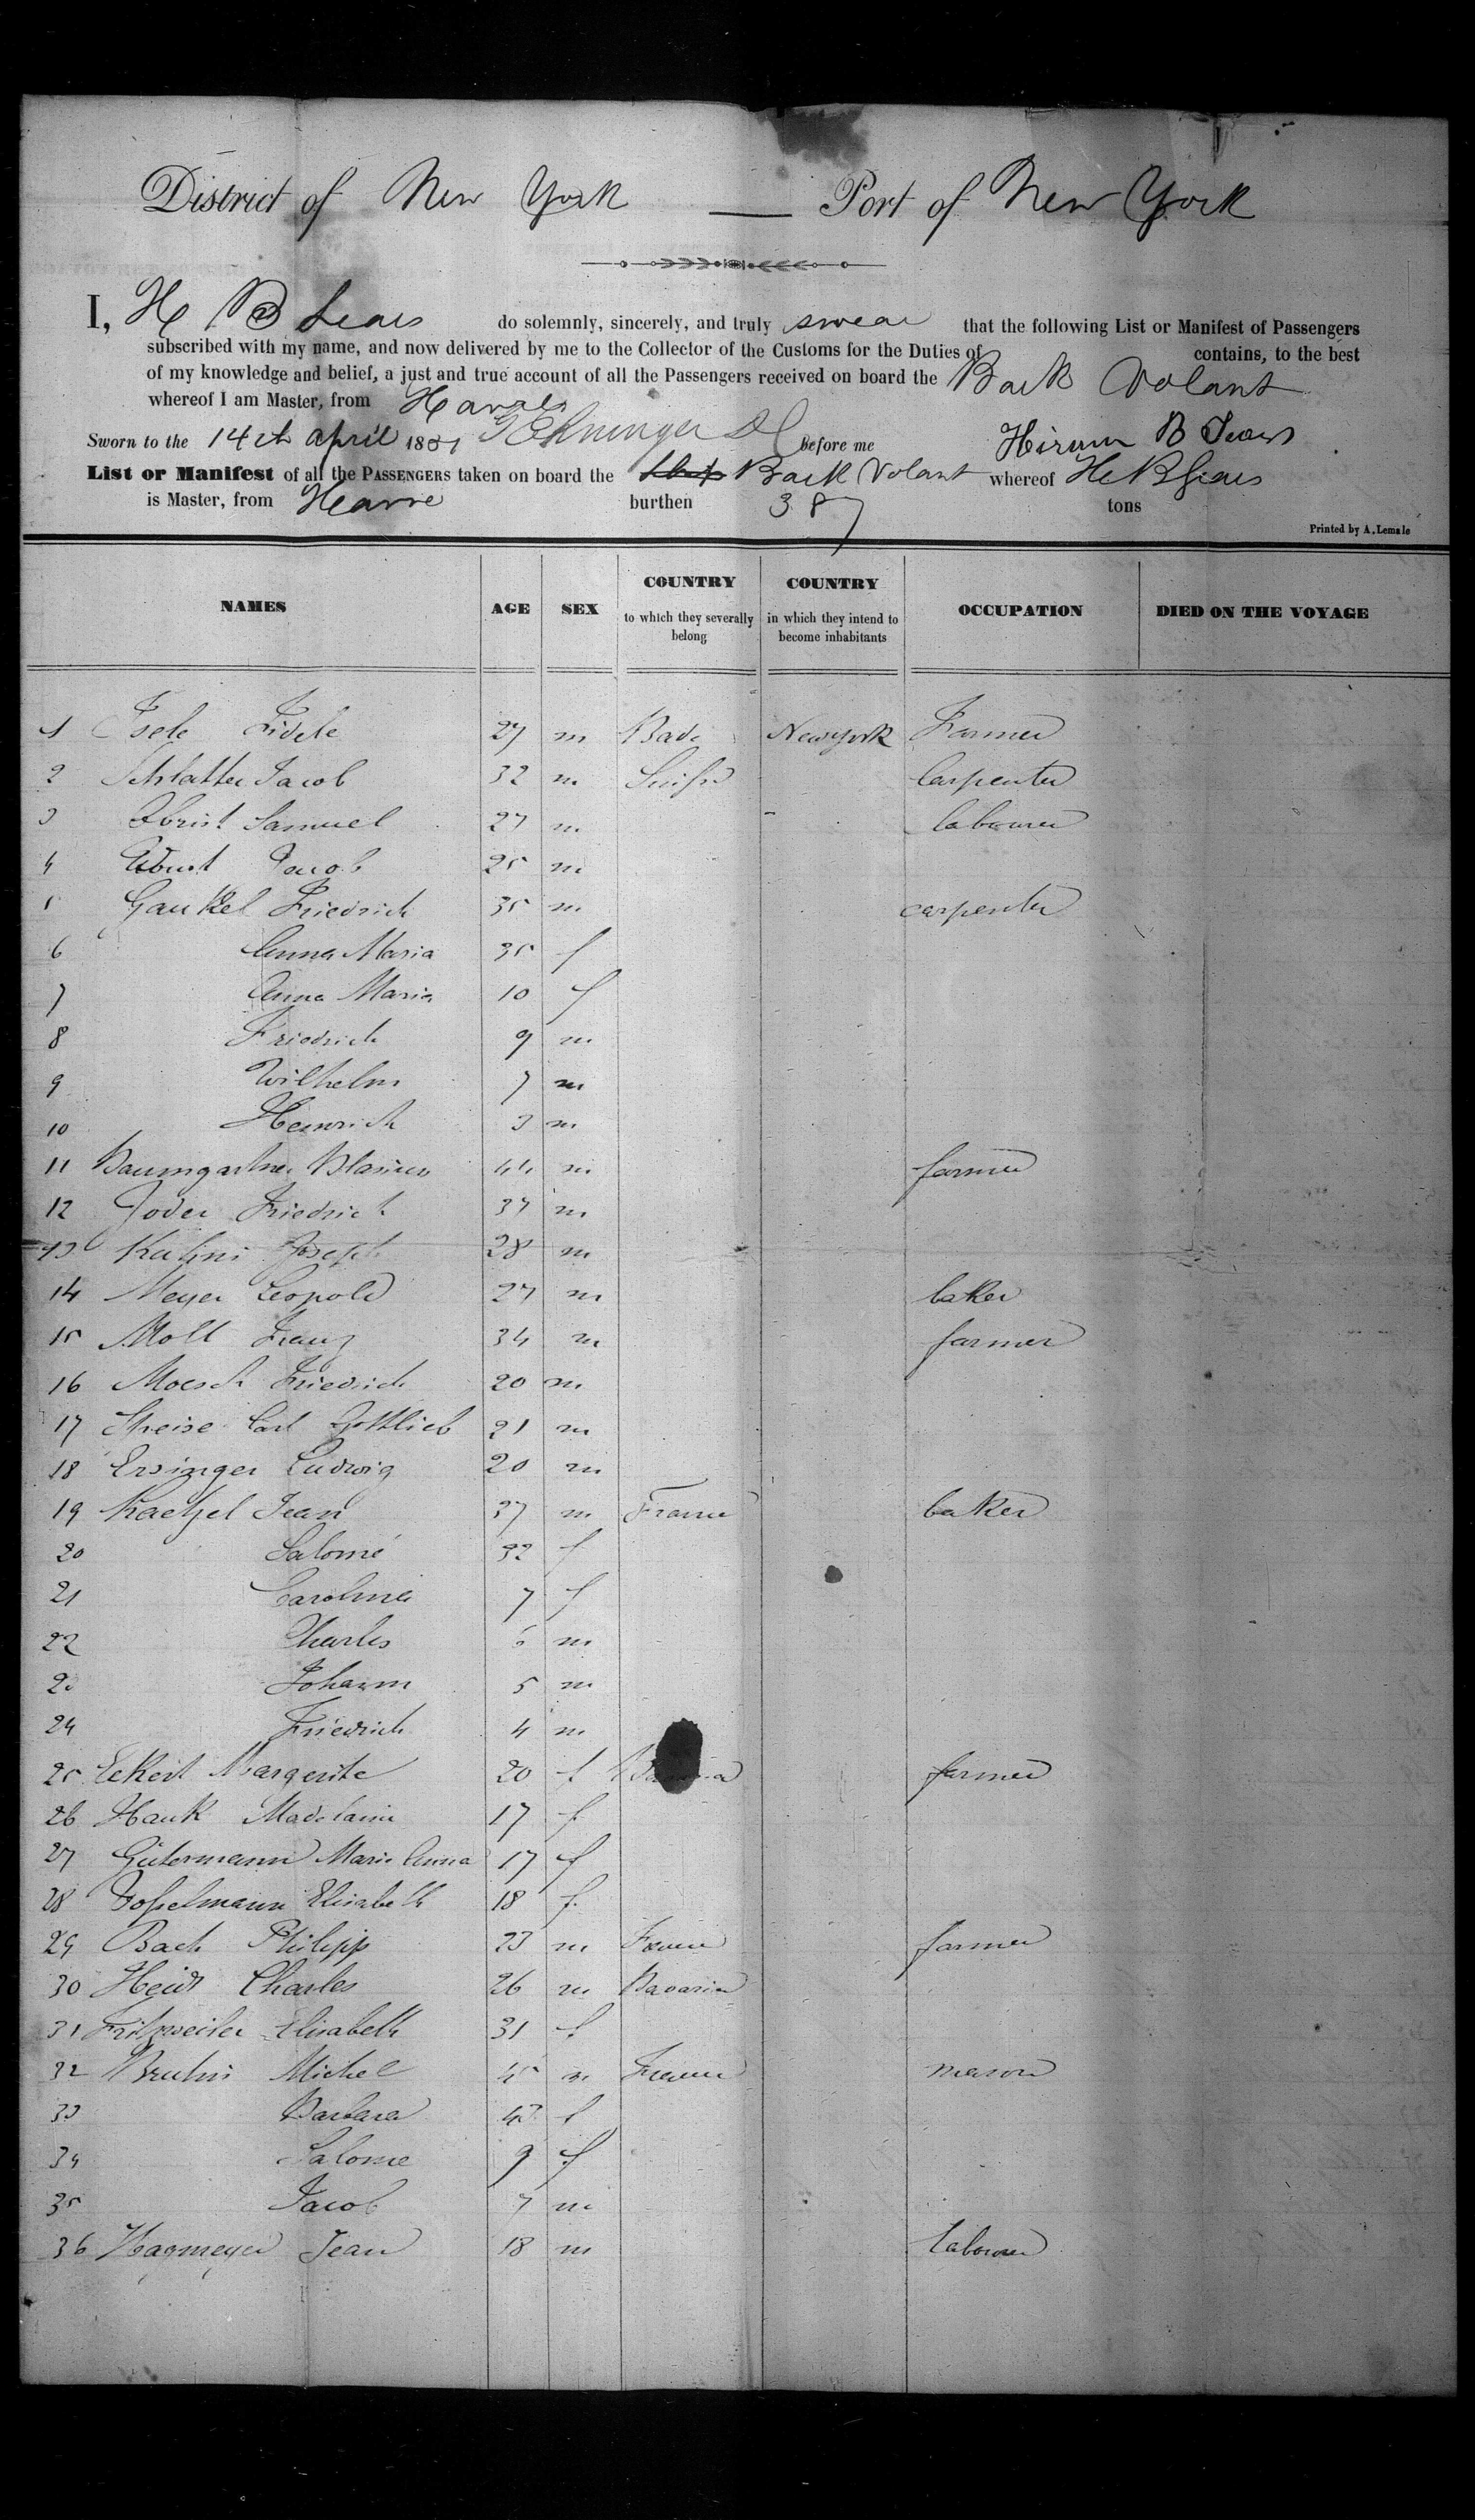 District of New York — Port of New York
I, H B Sears do solemnly, sincerely, and truly swear that the following List or Manifest of Passengers
subscribed with my name, and now delivered by me to the Collector of the Customs for the Duties of contains, to the best
of my knowledge and belief, a just and true account of all the Passengers received on board the Bark Volant
whereof I am Master, from
Sworn to the 14th April 1851 Before me Hiram B Sears
List or Manifest of all the PASSENGERS taken on board the Ship Bark Volant whereof H B Sears
is Master, from Havre burthen 387 tons
Printed by A. Lemale
NAMES AGE SEX COUNTRY to which they severally belong COUNTRY in which they intend to become inhabitants OCCUPATION DIED ON THE VOYAGE
1 Isele Fidele 27 m Bade Newyork Farmer
2 Schlatter Jacob 32 m Suisse Carpenter
3 Obrist Samuel 27 m labourer
4 Jacob 25 m
5 Gaukel Friedrich 35 m carpenter
6 Anna Maria 35 f
7 Anna Maria 10 f
8 Friedrich 9 m
9 Wilhelm 7 m
10 Heinrich 3 m
11 Baumgartner Blasius 44 m farmer
12 Joder Friedrich 37 m
13 Joseph 28 m
14 Meyer Leopold 27 m baker
15 Moll Franz 34 m farmer
16 Moesch Friedrich 20 m
17 Speise Carl Gottlieb 21 m
18 Ersinger Ludwig 20 m
19 Kaetzel Jean 37 m France baker
20 Salomé 32 f
21 Caroline 7 f
22 Charles 6 m
23 Johann 5 m
24 Friedrich 4 m
25 Eckert Margerite 20 f Bavaria farmer
26 Hauk Madelaine 17 f
27 Gütermann Marie Anna 17 f
28 Elisabeth 18 f
29 Bach Philipp 23 m France farmer
30 Heidt Charles 26 m Bavaria
31 Fritzweiler Elisabeth 31 f
32 Michel 45 m France mason
33 Barbara 43 f
34 Salome 9 f
35 Jacob 7 m
36 Hagmeyer Jean 18 m labourer